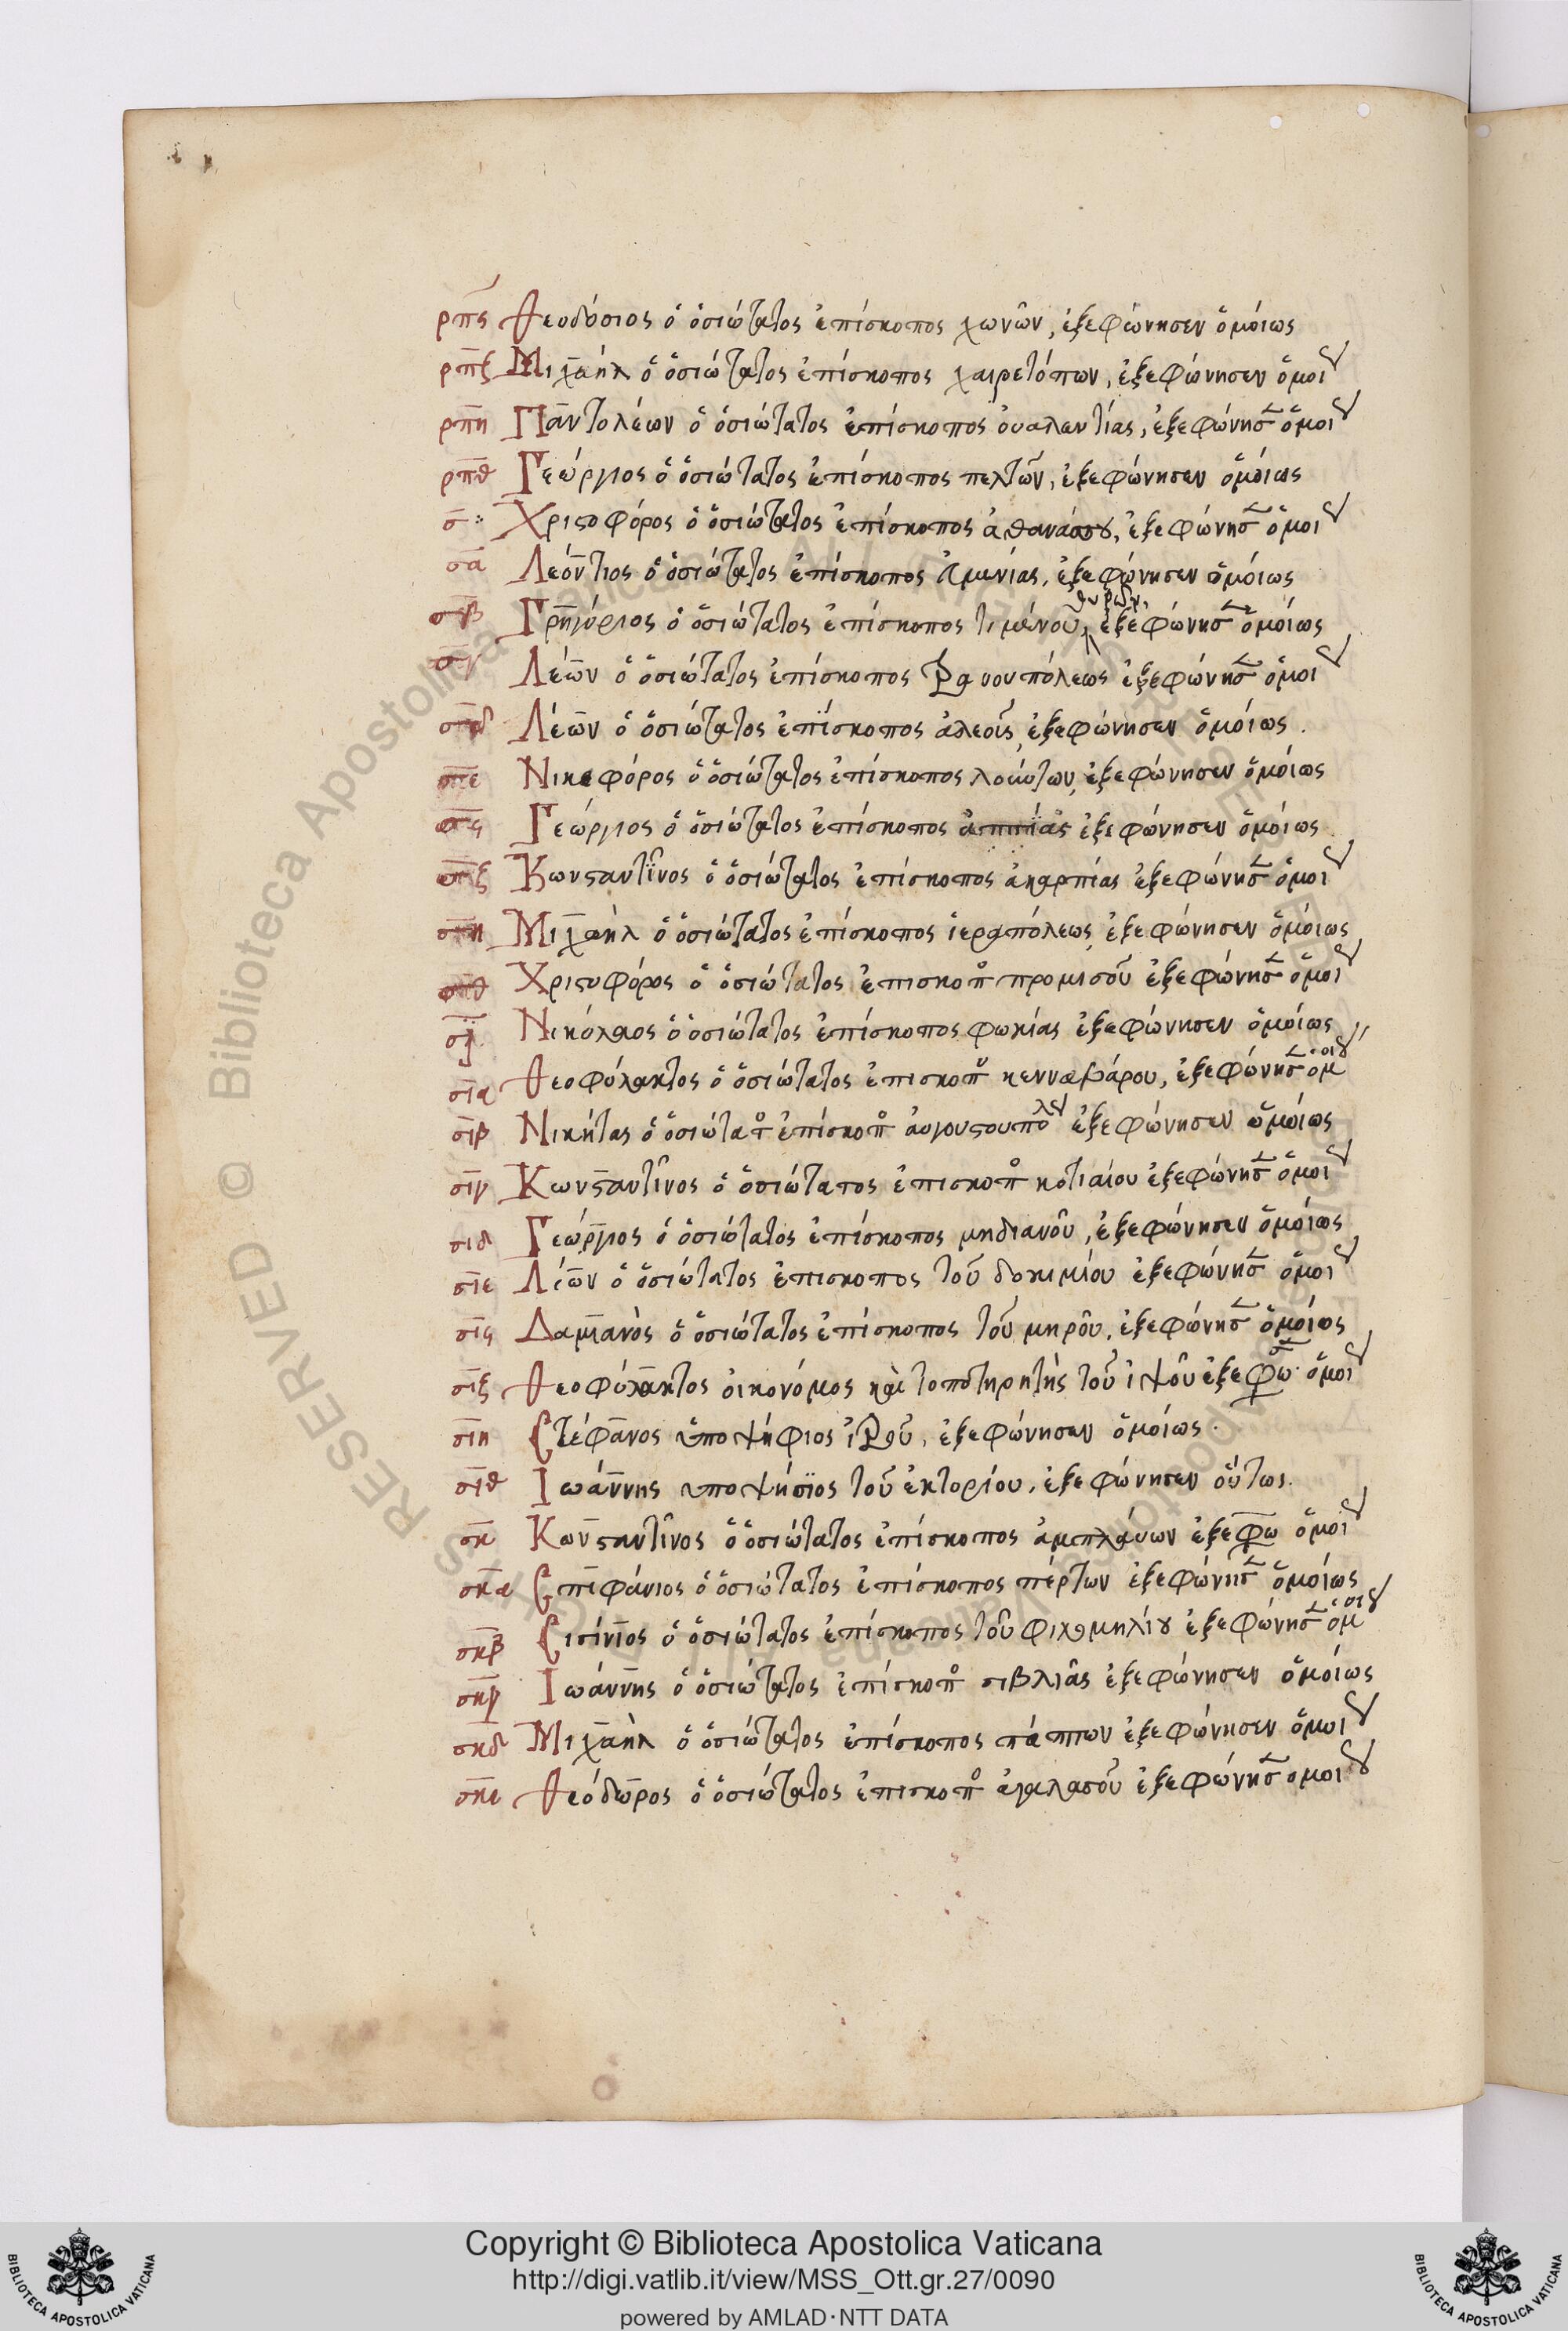 ρπς Θεοδόσιος ὁ ὁσιώτατος ἐπίσκοπος χωνῶν, ἐξεφώνησεν ὁμοίως
ρπζ Μιχαὴλ ὁ ὁσιώτατος ἐπίσκοπος χαιρετόπων, ἐξεφώνησεν ὁμοι
ρπη Παντολέων ὁ ὁσιώτατος ἐπίσκοπος ὀυαλεντίας, ἐξεφώνησ ὁμοι
ρπθ Γεώργιος ὁ ὁσιώτατος ἐπίσκοπος πελτῶν, ἐξεφώνησεν ὁμόίως
σ Χριστοφόρος ὁ ὁσιώτατος ἐπίσκοπος ἀθανάσου, ἐξεφώνησ ὁμοι
σα Λεόντιος ὁ ὁσιώτατος ἐπίσκοπος ἀμωνίας, ἐξεφώνησεν ὁμόίως
σβ Γρηγόριος ὁ ὁσιώτατος ἐπίσκοπος τιμένου, ἐξεφώνησ ὁμόίως
σγ Λέων ὁ ὁσιώτατος ἐπίσκοπος ἐξεφώνησ ὁμοι
σδ Λέων ὁ ὁσιώτατος ἐπίσκοπος ἀλεοῖς, ἐξεφώνησεν ὁμόίως.
σε Νικεφόρος ὁ ὁσιώτατος ἐπίσκοπος ἐξεφώνησεν ὁμόίως
σς Γεώργιος ὁ ὁσιώτατος ἐπίσκοπος ἀππίας ἐξεφώνησεν ὁμόίως
σζ Κωνσταντῖνος ὁ ὁσιώτατος ἐπίσκοπος ἀκαρπίας ἐξεφώνησ ὁμοι
ση Μιχαὴλ ὁ ὁσιώτατος ἐπίσκοπος ἱεραπόλεως, ἐξεφώνησεν ὁμόίως
σθ Χριστοφόρος ὁ ὁσιώτατος ἐπισκοπ προμισοῦ ἐξεφώνησ ὁμοι
σι Νικόλαος ὁ ὁσιώτατος ἐπίσκοπος φωκίας ἐξεφώνησεν ὁμόίως
σια Θεοφύλακτος ὁ ὁσιώτατος ἐπισκοπ κενναβάρου, ἐξεφώνησ ὁμοι
σιβ Νικήτας ὁ ὁσιώτατ ἐπίσκοπ ἀυγουστουπολ ἐξεφώνησεν ὁμόίως
σιγ Κωνσταντῖνος ὁ ὁσιώτατος ἐπισκοπ κοτιαίου ἐξεφώνησ ὁμοι
σιδ Γεώργιος ὁ ὁσιώτατος ἐπίσκοπος μηδιανοῦ, ἐξεφώνησεν ὁμόίως
σιε Λέων ὁ ὁσιώτατος ἐπισκοπος τοῦ δοκιμίου ἐξεφώνησ ὁμοι
σις Δαμιανὸς ὁ ὁσιώτατος ἐπίσκοπος τοῦ μηροῦ, ἐξεφώνησ ὁμόίως
σιζ Θεοφύλακτος ὀικονόμος καὶ τοποτηρητὴς τοῦ ἰψοῦ ἐξεφω ὁμοι
σιη Στέφανος ὑποψήφιος, ἐξεφώνησεν ὁμόίως.
σιθ Ἰωάννης ὑποψήσιος τοῦ ἐκτορίου, ἐξεφώνησεν οὕτως.
σκ Κωνσταντῖνος ὁ ὁσιώτατος ἐπίσκοπος ἀμπλάνων ἐξεφω ὁμοι
σκα Ἐπιφάνιος ὁ ὁσιώτατος ἐπίσκοπος πέρτων ἐξεφώνησ ὁμόίως
σκβ Σισίνιος ὁ ὁσιώτατος ἐπίσκοπος τοῦ φιλομηλίου ἐξεφώνησ ὁμοι
σκγ Ἰωάννης ὁ ὁσιώτατος ἐπίσκοπ σιβλιᾶς ἐξεφώνησεν ὁμόίως
σκδ Μιχαὴλ ὁ ὁσιώτατος ἐπίσκοπος πάππων ἐξεφώνησεν ὁμοι
σκε Θεόδωρος ὁ ὁσιώτατος ἐπισκοπ ἀγαλασοῦ ἐξεφώνησ ομοι
Copyright © Biblioteca Apostolica Vaticana
http://digi.vatlib.it/view/MSS_Ott.gr.27/0090
powered by AMLAD·NTT DATA
BIBLIOTECA APOSTOLICA VATICANA
BIBLIOTECA APOSTOLICA VATICANA